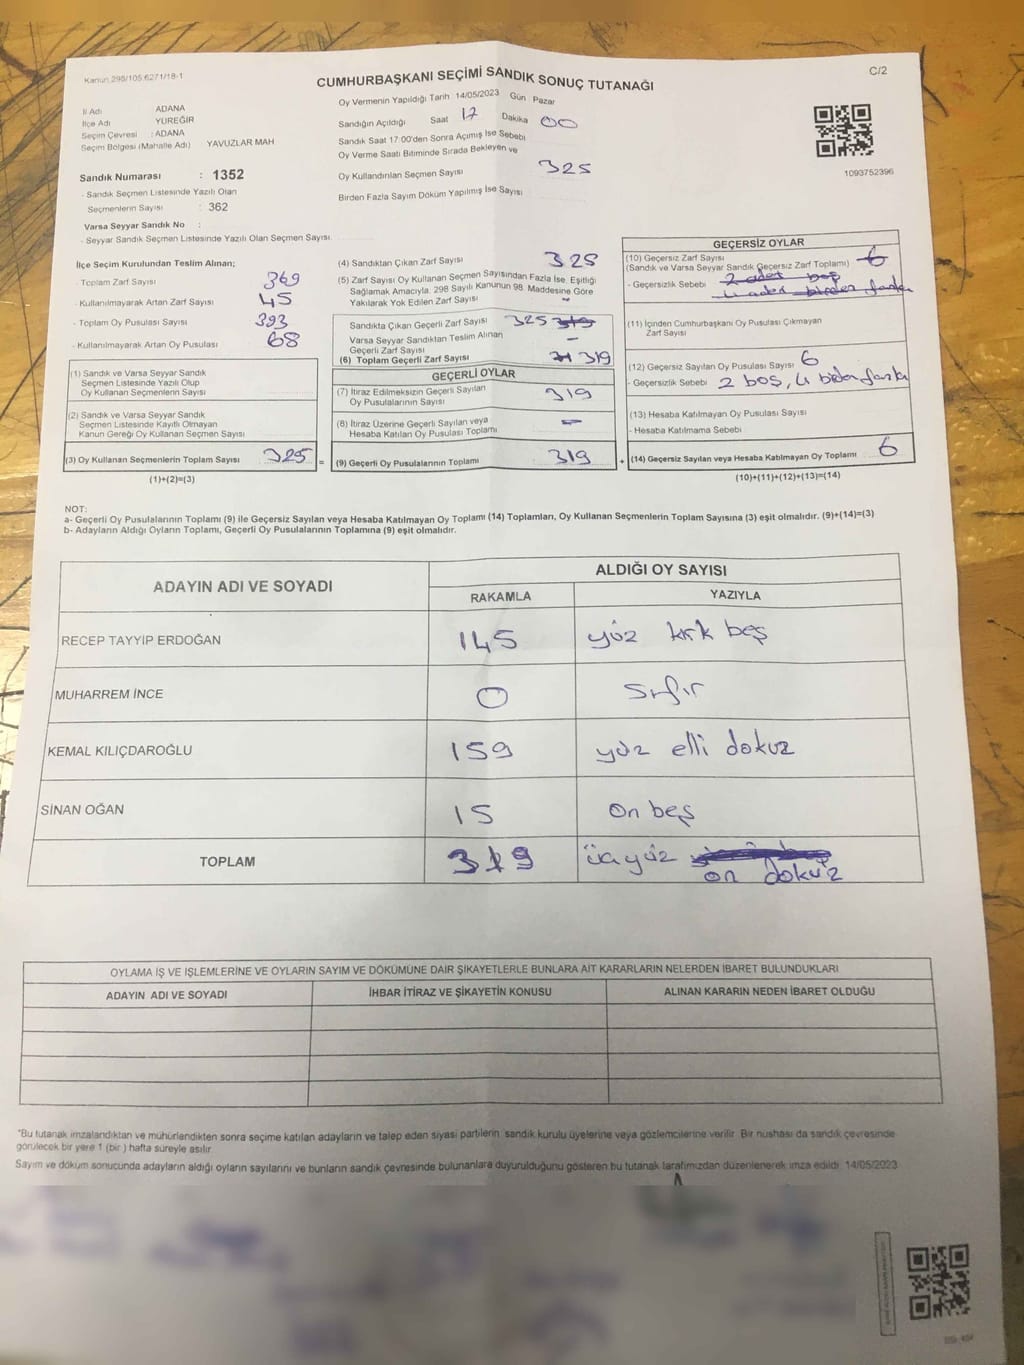 Kanun 298/105.6271/18-1
C/2
CUMHURBAŞKANI SEÇİMİ SANDIK SONUÇ TUTANAĞI
İl Adı ADANA
İlçe Adı YÜREĞİR
Seçim Çevresi : ADANA
Seçim Bölgesi (Mahalle Adı) YAVUZLAR MAH
Sandık Numarası : 1352
- Sandık Seçmen Listesinde Yazılı Olan
Seçmenlerin Sayısı : 362
Varsa Seyyar Sandık No :
- Seyyar Sandık Seçmen Listesinde Yazılı Olan Seçmen Sayısı
Oy Vermenin Yapıldığı Tarih 14/05/2023 Gün Pazar
Sandığın Açıldığı Saat 17 Dakika 00
Sandık Saat 17:00'den Sonra Açılmış İse Sebebi
Oy Verme Saati Bitiminde Sırada Bekleyen ve
Oy Kullandırılan Seçmen Sayısı 325
Birden Fazla Sayım Döküm Yapılmış İse Sayısı
1093752396
İlçe Seçim Kurulundan Teslim Alınan;
- Toplam Zarf Sayısı 369
- Kullanılmayarak Artan Zarf Sayısı 45
- Toplam Oy Pusulası Sayısı 393
- Kullanılmayarak Artan Oy Pusulası 68
(1) Sandık ve Varsa Seyyar Sandık
Seçmen Listesinde Yazılı Olup
Oy Kullanan Seçmenlerin Sayısı
(2) Sandık ve Varsa Seyyar Sandık
Seçmen Listesinde Kayıtlı Olmayan
Kanun Gereği Oy Kullanan Seçmen Sayısı
(3) Oy Kullanan Seçmenlerin Toplam Sayısı 325 =
(1)+(2)=(3)
(4) Sandıktan Çıkan Zarf Sayısı 325
(5) Zarf Sayısı Oy Kullanan Seçmen Sayısından Fazla İse, Eşitliği
Sağlamak Amacıyla, 298 Sayılı Kanunun 98. Maddesine Göre
Yakılarak Yok Edilen Zarf Sayısı -
Sandıkta Çıkan Geçerli Zarf Sayısı 325 319
Varsa Seyyar Sandıktan Teslim Alınan
Geçerli Zarf Sayısı -
(6) Toplam Geçerli Zarf Sayısı 319
GEÇERLİ OYLAR
(7) İtiraz Edilmeksizin Geçerli Sayılan
Oy Pusulalarının Sayısı 319
(8) İtiraz Üzerine Geçerli Sayılan veya
Hesaba Katılan Oy Pusulası Toplamı -
(9) Geçerli Oy Pusulalarının Toplamı 319 +
GEÇERSİZ OYLAR
(10) Geçersiz Zarf Sayısı
(Sandık ve Varsa Seyyar Sandık Geçersiz Zarf Toplamı) 6
- Geçersizlik Sebebi 2 adet boş
4 adet birden fazla
(11) İçinden Cumhurbaşkanı Oy Pusulası Çıkmayan
Zarf Sayısı
(12) Geçersiz Sayılan Oy Pusulası Sayısı 6
- Geçersizlik Sebebi 2 boş, 4 birden fazla
(13) Hesaba Katılmayan Oy Pusulası Sayısı
- Hesaba Katılmama Sebebi
(14) Geçersiz Sayılan veya Hesaba Katılmayan Oy Toplamı 6
(10)+(11)+(12)+(13)=(14)
NOT:
a- Geçerli Oy Pusulalarının Toplamı (9) ile Geçersiz Sayılan veya Hesaba Katılmayan Oy Toplamı (14) Toplamları, Oy Kullanan Seçmenlerin Toplam Sayısına (3) eşit olmalıdır. (9)+(14)=(3)
b- Adayların Aldığı Oyların Toplamı, Geçerli Oy Pusulalarının Toplamına (9) eşit olmalıdır.
ADAYIN ADI VE SOYADI
ALDIĞI OY SAYISI
RAKAMLA YAZIYLA
RECEP TAYYİP ERDOĞAN 145 yüz kırk beş
MUHARREM İNCE 0 sıfır
KEMAL KILIÇDAROĞLU 159 yüz elli dokuz
SİNAN OĞAN 15 on beş
TOPLAM 319 üçyüz
on dokuz
OYLAMA İŞ VE İŞLEMLERİNE VE OYLARIN SAYIM VE DÖKÜMÜNE DAİR ŞİKAYETLERLE BUNLARA AİT KARARLARIN NELERDEN İBARET BULUNDUKLARI
ADAYIN ADI VE SOYADI İHBAR İTİRAZ VE ŞİKAYETİN KONUSU ALINAN KARARIN NEDEN İBARET OLDUĞU
"Bu tutanak imzalandıktan ve mühürlendikten sonra seçime katılan adayların ve talep eden siyasi partilerin sandık kurulu üyelerine veya gözlemcilerine verilir. Bir nushası da sandık çevresinde
görülecek bir yere 1 (bir) hafta süreyle asılır.
Sayım ve döküm sonucunda adayların aldığı oyların sayılarını ve bunların sandık çevresinde bulunanlara duyurulduğunu gösteren bu tutanak tarafımızdan düzenlenerek imza edildi. 14/05/2023